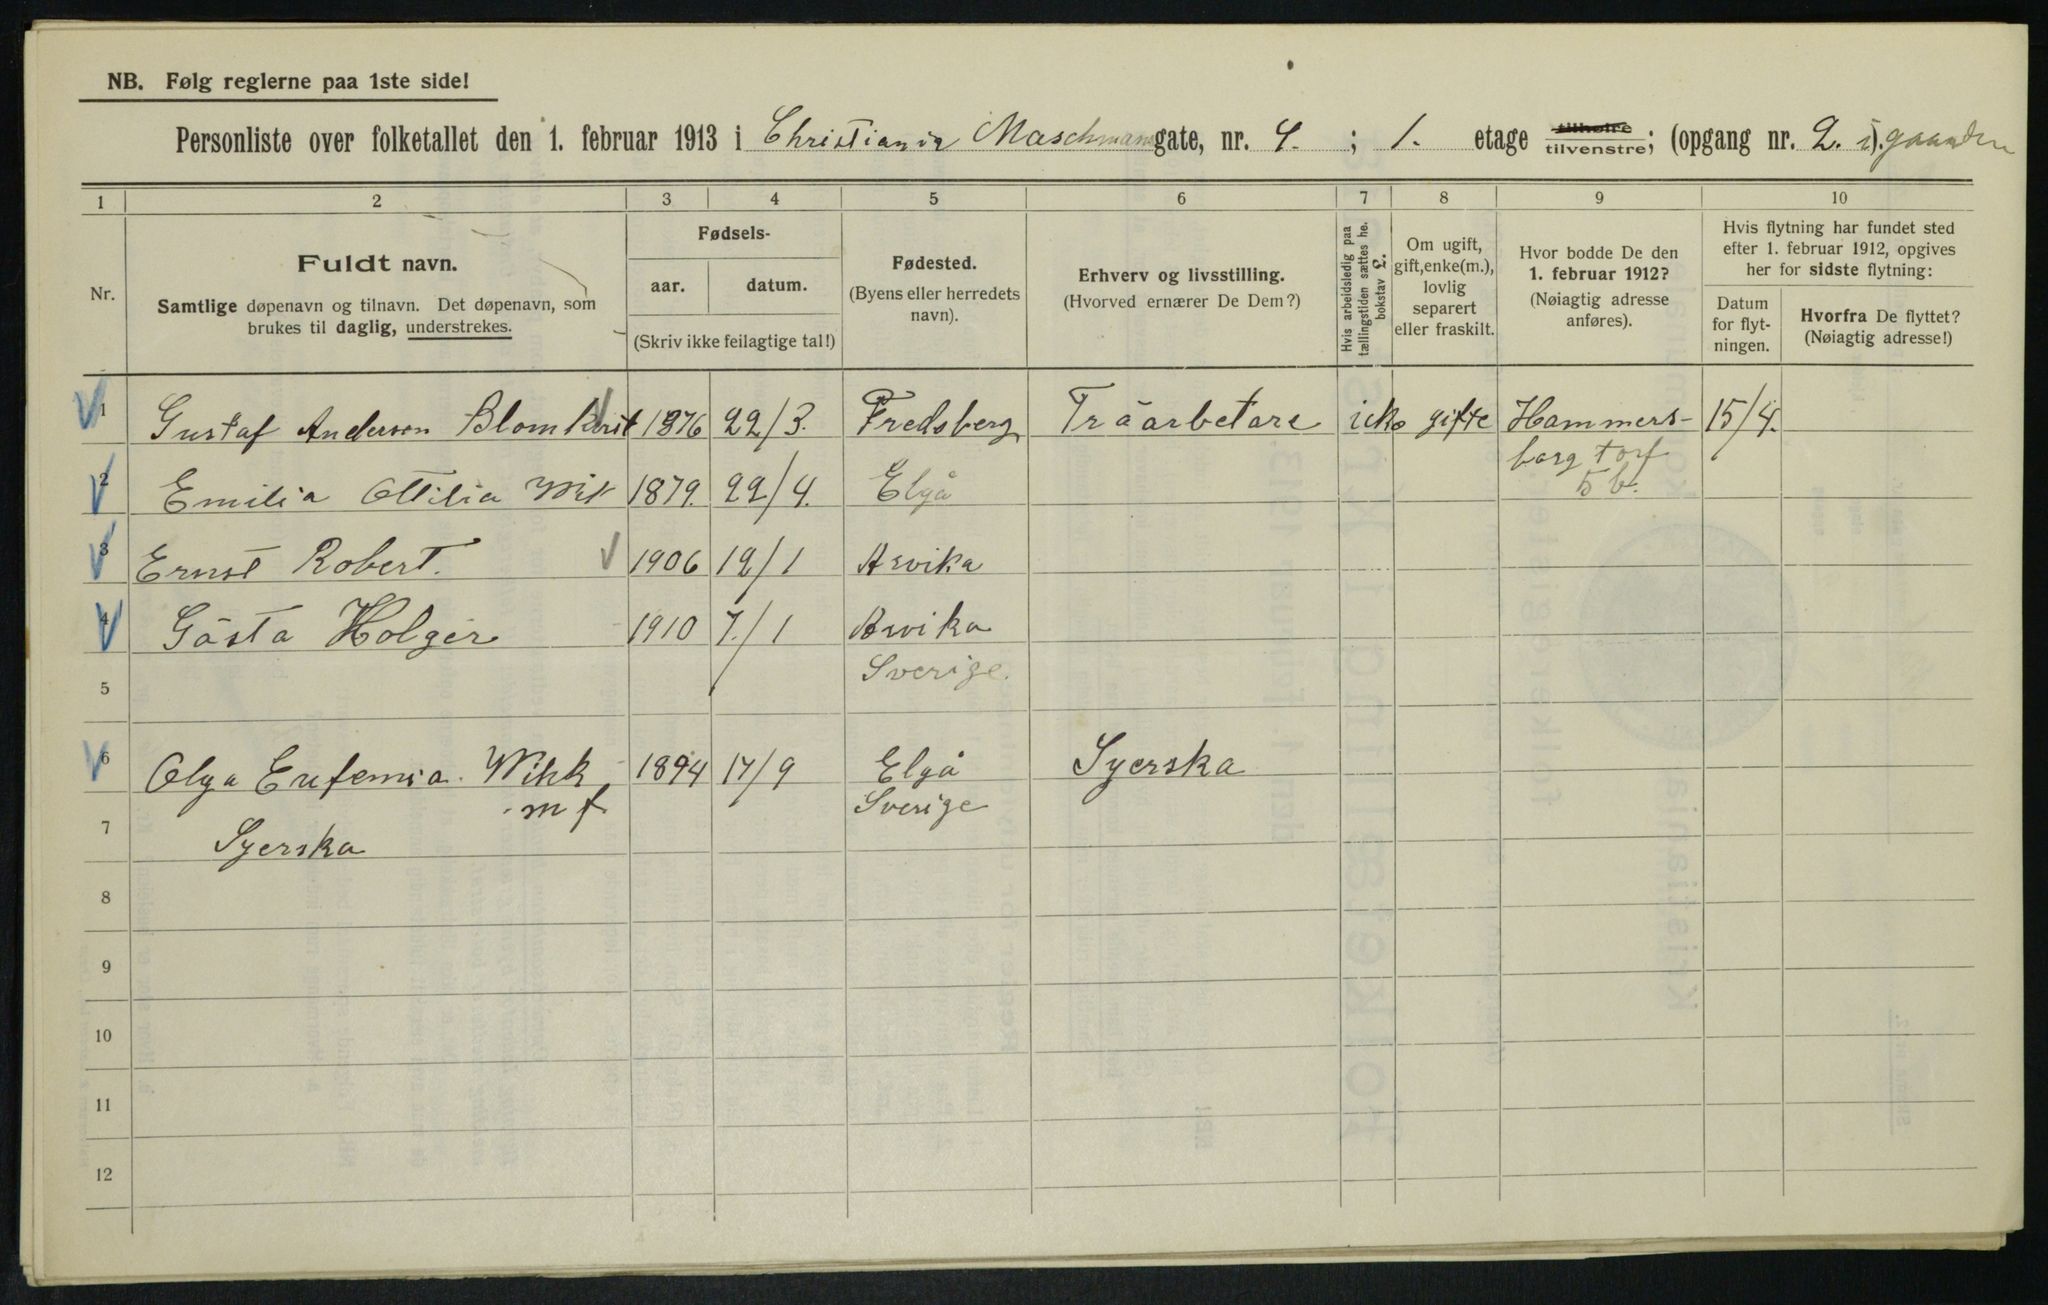 NB. Følg reglerne paa 1ste side!
Personliste over folketallet den 1. februar 1913 i Christiania Maschmansgate, nr. 4. ; 1. etage tilhøire tilvenstre; (opgang nr. 2. i). gaarden
1 2 3 4 5 6 7 8 9 10
Nr.
Fuldt navn.
Samtlige døpenavn og tilnavn. Det døpenavn, som
brukes til daglig, understrekes.
Fødsels-
aar. datum.
(Skriv ikke feilagtige tal!)
Fødested.
(Byens eller herredets
navn).
Erhverv og livsstilling.
(Hvorved ernærer De Dem?)
Hvis arbeidsledig paa
tællingstiden sættes he.
bokstav L.
Om ugift,
gift, enke(m.),
lovlig
separert
eller fraskilt.
Hvor bodde De den
1. februar 1912?
(Nøiagtig adresse
anføres).
Hvis flytning har fundet sted
efter 1. februar 1912, opgives
her for sidste flytning:
Datum
for flyt-
ningen.
Hvorfra De flyttet?
(Nøiagtig adresse!)
1 Gustaf Anderson Blomkvist 1876 22/3. Fredsberg Träarbetare icke gifte Hammers- 15/4.
borg torf
2 Emilia Ottilia Wik 1879. 22/4. Elgå 5 b.
3 Ernst Robert. 1906 12/1 Arvika
4 Gösta Holger 1910 7./1 Arvika
5 Sverige.
6 Olga Eufemia Wikk 1894 17/9 Elgå Syerska
m f Sverige
7 Syerska
8
9
10
11
12